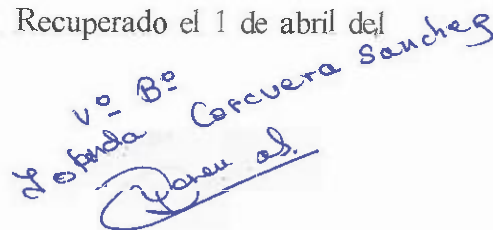 Recuperado el 1 de abril del
Vº Bº
Corcuera Sanchez